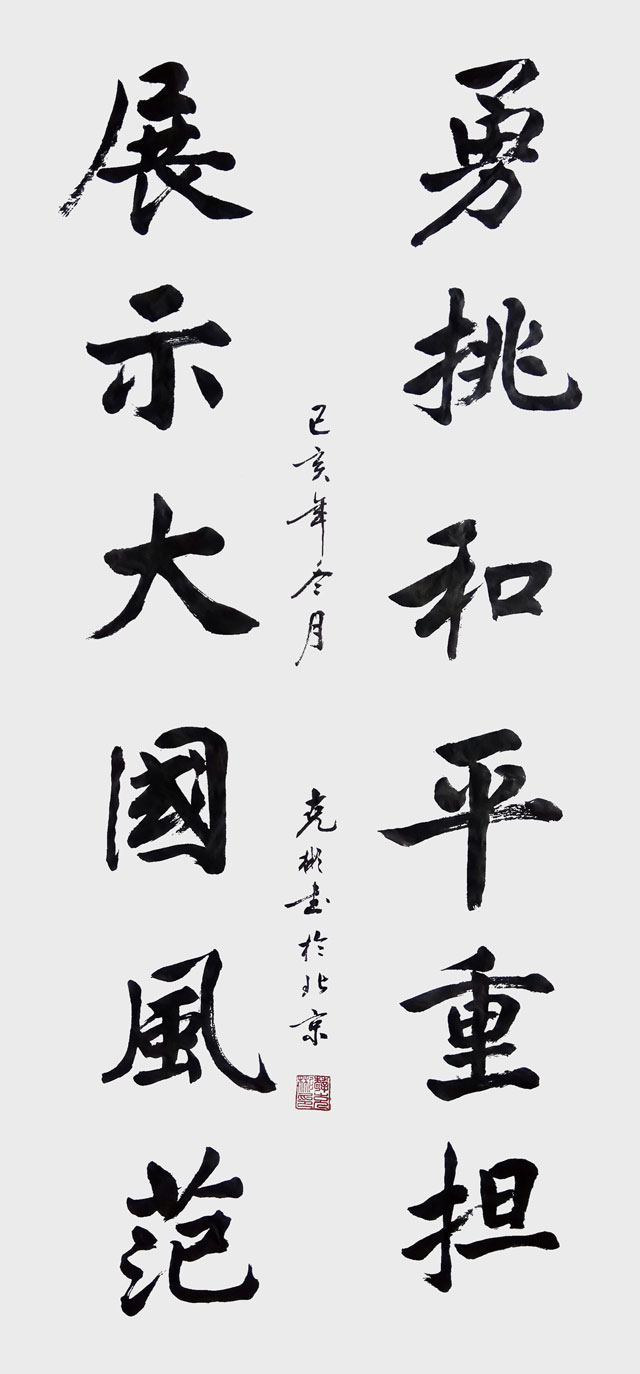 勇挑和平重担
展示大國風范
己亥年冬月
彬書於北京